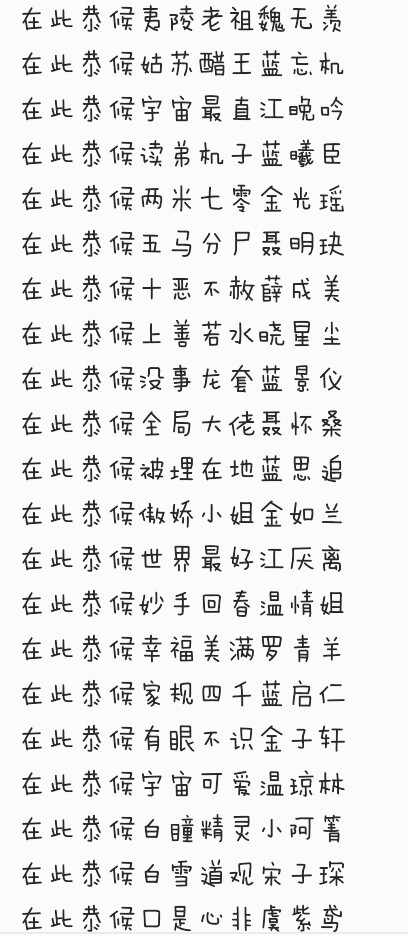 在此恭候夷陵老祖魏无羡
在此恭候姑苏醋王蓝忘机
在此恭候宇宙最直江晚吟
在此恭候读弟机子蓝曦臣
在此恭候两米七零金光瑶
在此恭候五马分尸聂明玦
在此恭候十恶不赦薛成美
在此恭候上善若水晓星尘
在此恭候没事龙套蓝景仪
在此恭候全局大佬聂怀桑
在此恭候被埋在地蓝思追
在此恭候傲娇小姐金如兰
在此恭候世界最好江厌离
在此恭候妙手回春温情姐
在此恭候幸福美满罗青羊
在此恭候家规四千蓝启仁
在此恭候有眼不识金子轩
在此恭候宇宙可爱温琼林
在此恭候白瞳精灵小阿箐
在此恭候白雪道观宋子琛
在此恭候口是心非虞紫鸢